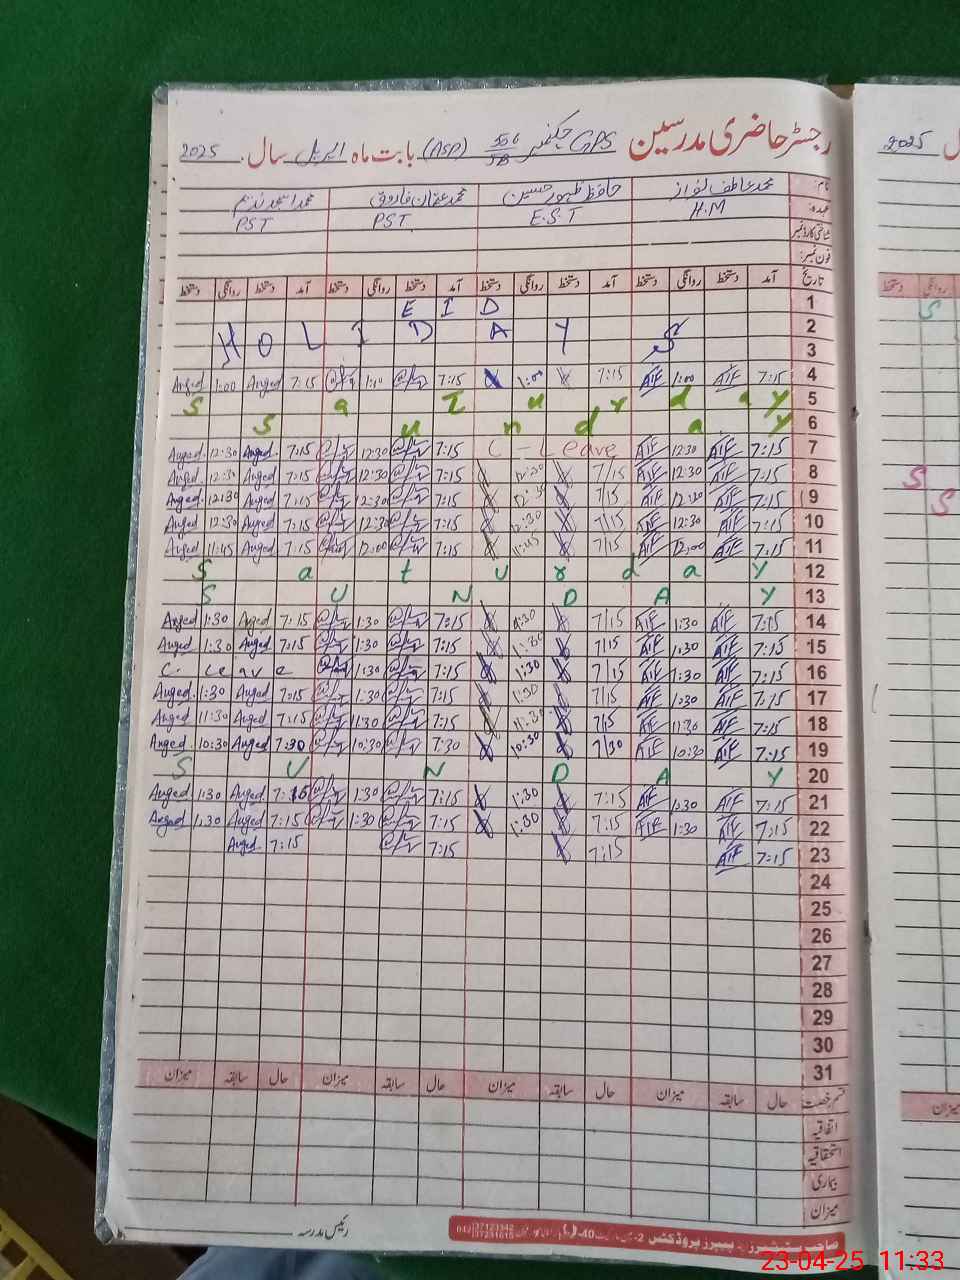 رجسٹر حاضری مدرسین GPS چکنمبر 556/JB (ASP) بابت ماہ اپریل سال 2025
نام: محمد عاطف نواز حافظ ظہور حسین محمد عثمان فاروق محمد اسجد ندیم
عہدہ: H.M E.S.T PST PST
شناختی کارڈ نمبر
فون نمبر:
تاریخ آمد دستخط روانگی دستخط آمد دستخط روانگی دستخط آمد دستخط روانگی دستخط آمد دستخط روانگی دستخط
EID 1
HOLIDAYS 2
3
Asged 1:00 Asged 7:15 7:15 1:00 7:15 Atif 1:00 Atif 7:15 4
Saturday 5
Sunday 6
Asged 12:30 Asged 7:15 12:30 7:15 C-Leave Atif 12:30 Atif 7:15 7
Asged 12:30 Asged 7:15 12:30 7:15 12:30 7:15 Atif 12:30 Atif 7:15 8
Asged 12:30 Asged 7:15 12:30 7:15 12:30 7:15 Atif 12:30 Atif 7:15 9
Asged 12:30 Asged 7:15 12:30 7:15 12:30 7:15 Atif 12:30 Atif 7:15 10
Asged 11:45 Asged 7:15 12:00 7:15 11:45 7:15 Atif 12:00 Atif 7:15 11
Saturday 12
SUNDAY 13
Asged 1:30 Asged 7:15 1:30 7:15 1:30 7:15 Atif 1:30 Atif 7:15 14
Asged 1:30 Asged 7:15 1:30 7:15 1:30 7:15 Atif 1:30 Atif 7:15 15
C. Leave 1:30 7:15 1:30 7:15 Atif 1:30 Atif 7:15 16
Asged 1:30 Asged 7:15 1:30 7:15 1:30 7:15 Atif 1:30 Atif 7:15 17
Asged 11:30 Asged 7:15 11:30 7:15 11:30 7:15 Atif 11:30 Atif 7:15 18
Asged 10:30 Asged 7:30 10:30 7:30 10:30 7:30 Atif 10:30 Atif 7:15 19
SUNDAY 20
Asged 1:30 Asged 7:15 1:30 7:15 1:30 7:15 Atif 1:30 Atif 7:15 21
Asged 1:30 Asged 7:15 1:30 7:15 1:30 7:15 Atif 1:30 Atif 7:15 22
Asged 7:15 7:15 7:15 Atif 7:15 23
24
25
26
27
28
29
30
31
قسم رخصت حال سابقہ میزان حال سابقہ میزان حال سابقہ میزان حال سابقہ میزان
اتفاقیہ
استحقاقیہ
بیماری
میزان
رئیس مدرسہ
23-04-25 11:33
2025